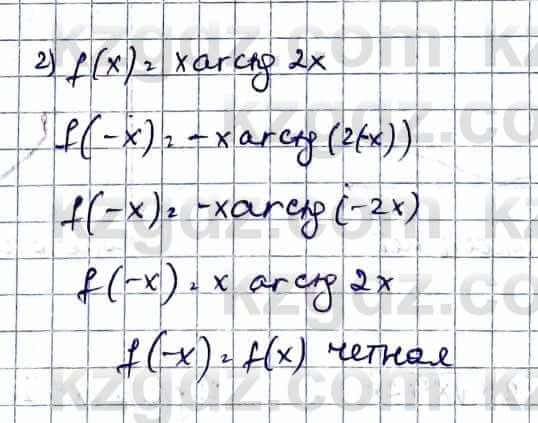 2) f(x) = x arctg 2x
f(-x) = -x arctg (2(-x))
f(-x) = -x arctg (-2x)
f(-x) = x arctg 2x
f(-x) = f(x) четная
kzgdz.com